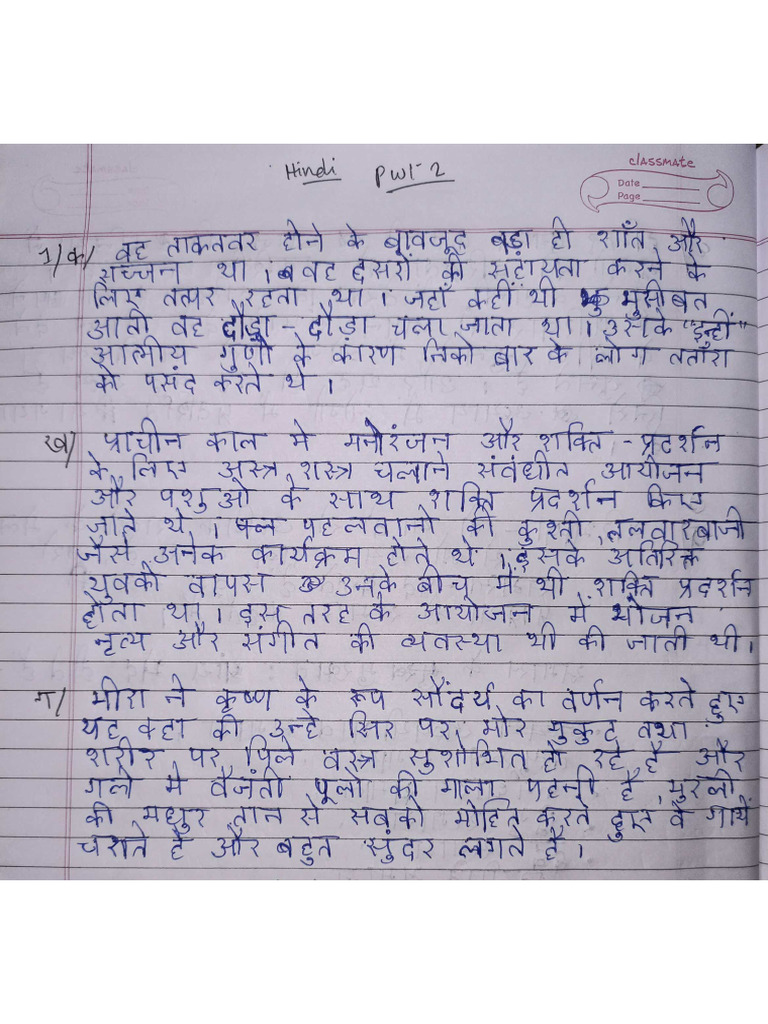 Hindi PWS-2
classmate
Date
Page
1/क/ वह ताकतवर होने के बावजूद बड़ा ही शाँत और
सज्जन था। वह दूसरों की सहायता करने के
लिए तत्पर रहता था। जहाँ कहीं भी मुसीबत
आती वह दौड़ा-दौड़ा चला जाता था। उसके "इन्हीं"
आत्मीय गुणों के कारण निको बार के लोग तताँरा
को पसंद करते थे।
ख/ प्राचीन काल मे मनोरंजन और शक्ति-प्रदर्शन
के लिए अस्त्र शस्त्र चलाने संबंधीत आयोजन
और पशुओ के साथ शक्ति प्रदर्शन किए
जाते थे। पहलवानो की कुश्ती, तलवारबाजी
जैसे अनेक कार्यक्रम होते थे। इसके अतिरिक्त
युवको वापस उनके बीच में भी शक्ति प्रदर्शन
होता था। इस तरह के आयोजन में भोजन
नृत्य और संगीत की व्यवस्था भी की जाती थी।
ग/ मीरा ने कृष्ण के रूप सौंदर्य का वर्णन करते हुए
यह कहा की उन्हे सिर पर मोर मुकुट तथा
शरीर पर पिले वस्त्र सुशोभित हो रहे है और
गले मे वैजंती फूलो की माला पहनी है, मुरली
की मधुर तान से सबको मोहित करते हुए वे गायें
चराते है और बहुत सुंदर लगते है।